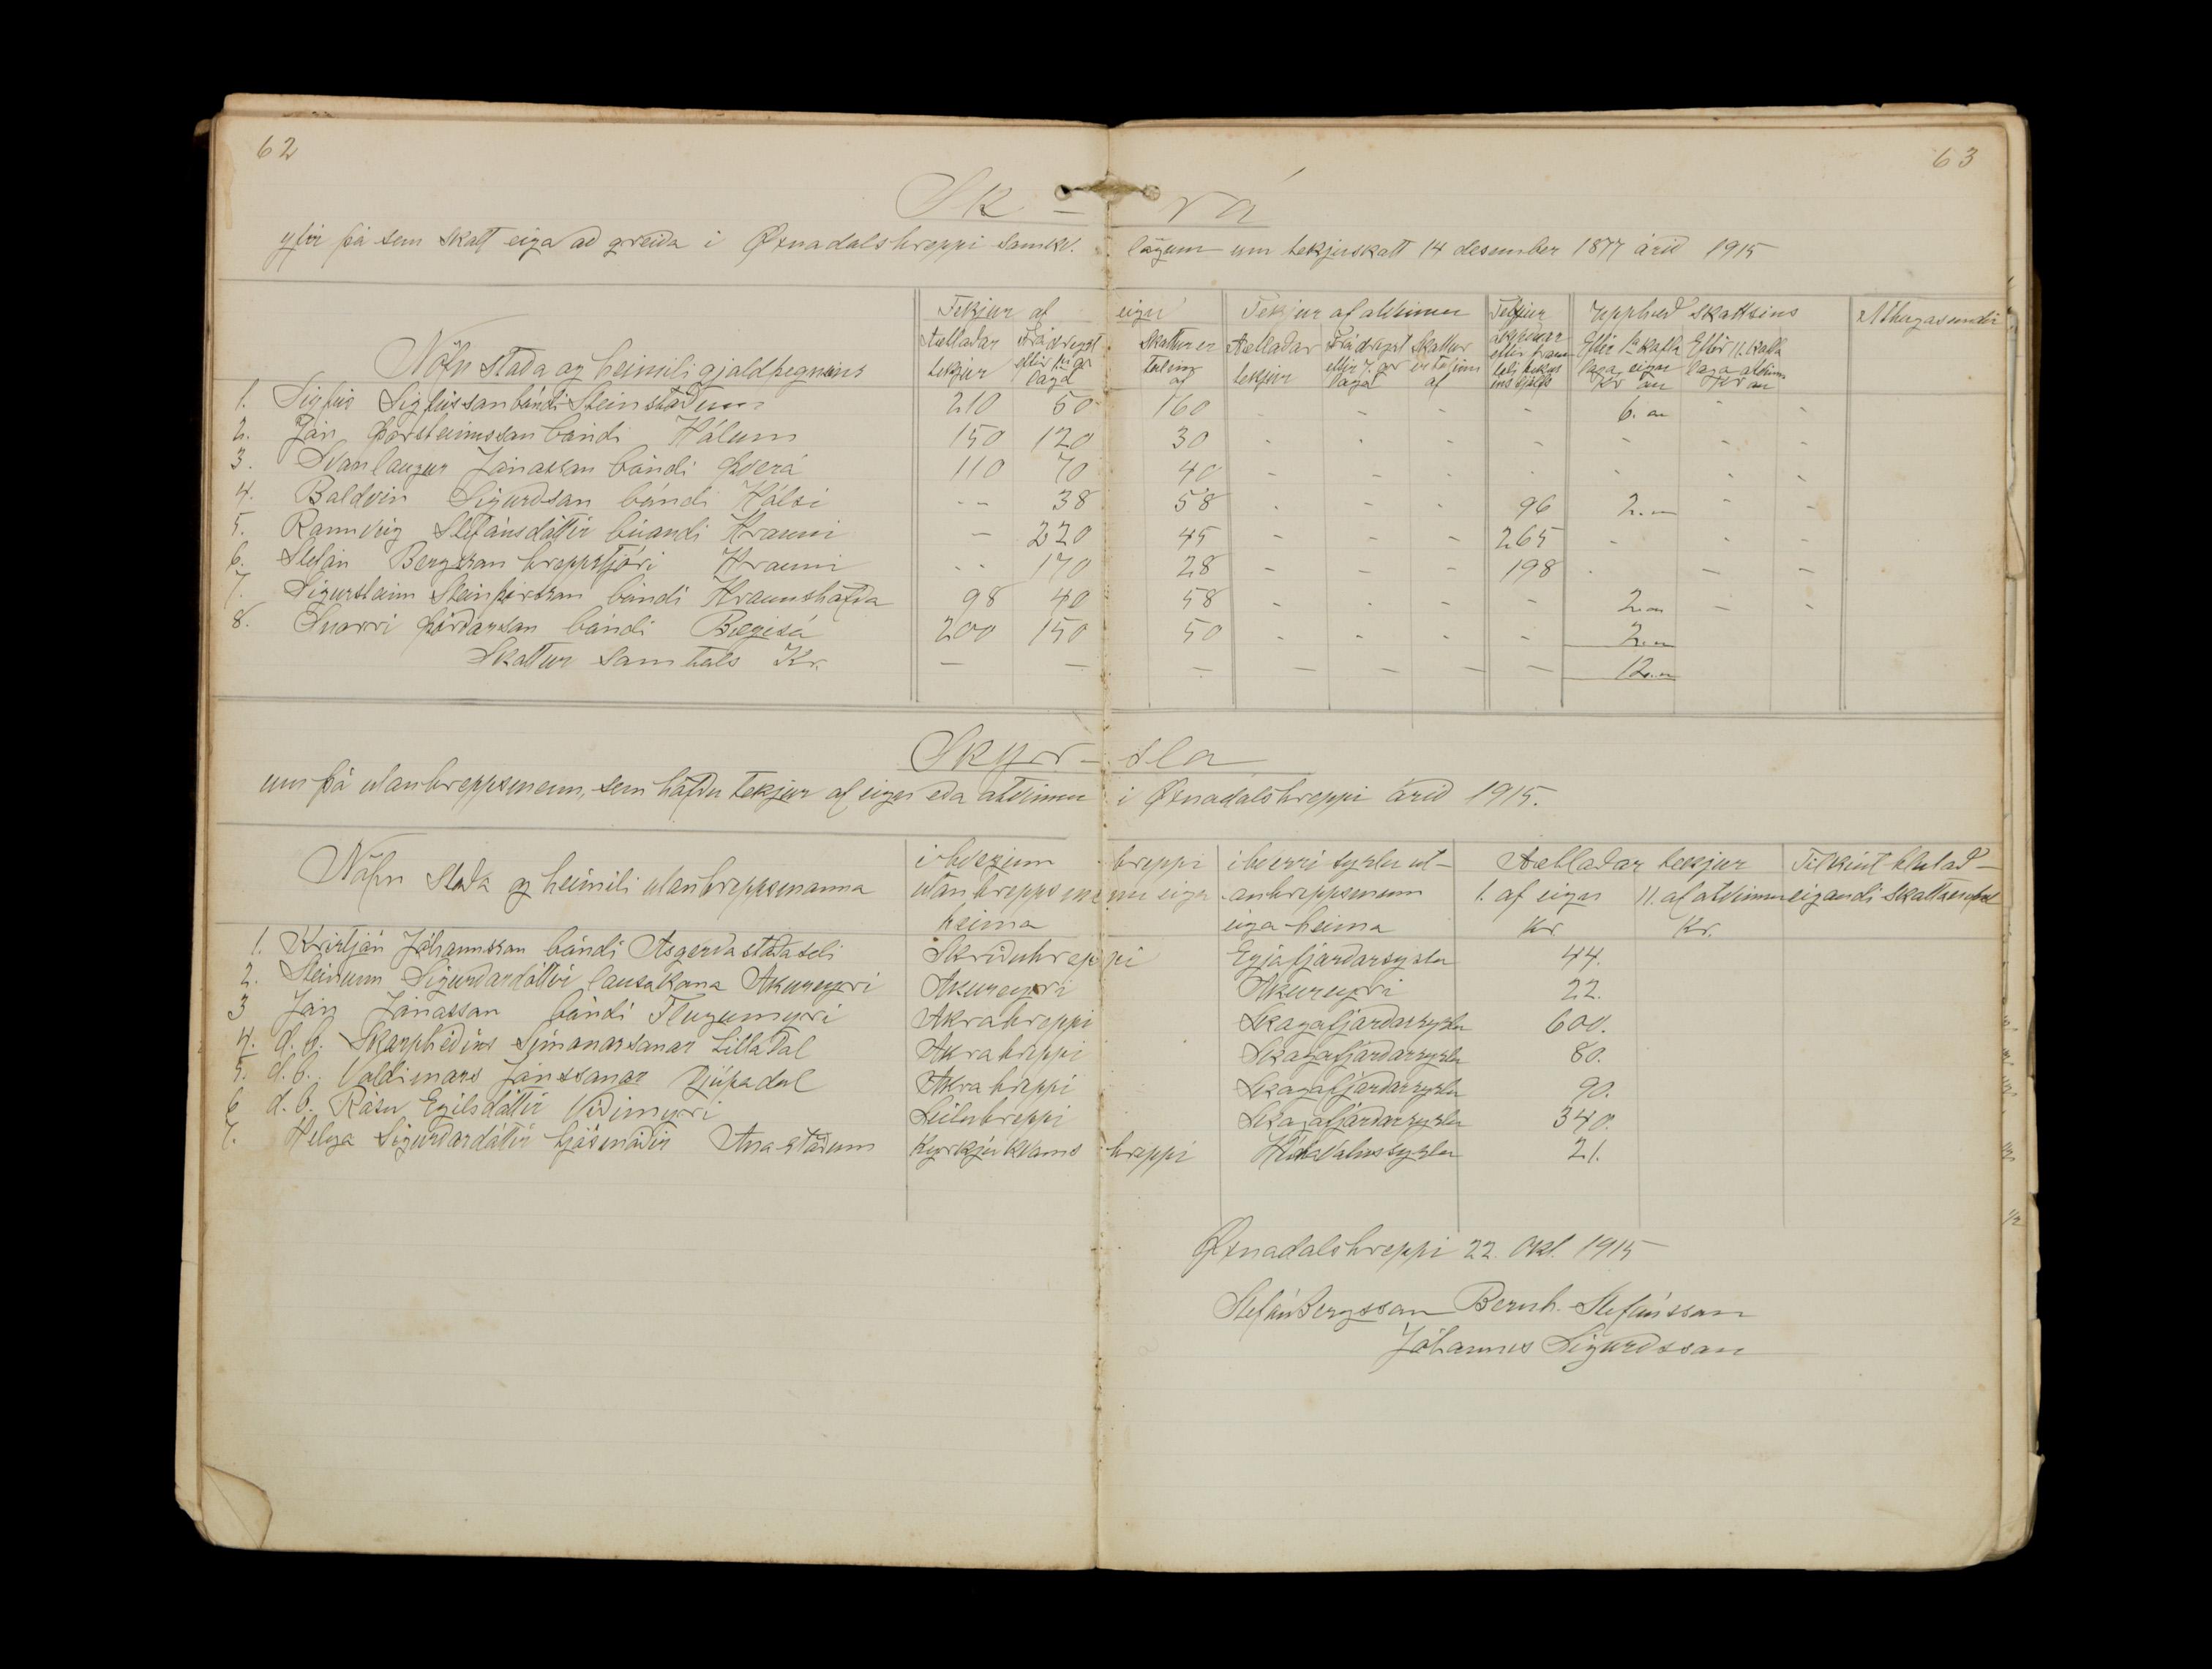 62
63
Sk - rá
yfir þá sem skatt eiga að greiða i Øxnadalshreppi samkv. lögum um tekjuskatt 14 desember 1877 árið 1915
Nöfn staða og heimili gjaldþegnsins
Tekjur af eign
Áætlaðar tekjur
Frádregst eftir 1u gr laga
Skattur er tekinn af
Tekjur af atvinnu
Áætlaðar tekjur
Frádregst eftir 7. gr laga
Skattur er tekinn af
Tekjur
Upphæð skattsins
Eftir 1a kafla laga, eign Kr au
Eftir 11. kafla laga atvinna Kr au
Athugasemdir
1. Sigfús Sigfússon bóndi Steinstöðum 210 50 160 - - - - 6. „ - -
2. Jón Þorsteinsson bóndi Hólum 150 120 30 - - - - - - -
3. Svanlaugur Jónasson bóndi Þverá 110 70 40 - - - - - - -
4. Baldvin Sigurðsson bóndi Hálsi -- 38 58 - - - 96 2. „ - -
5. Rannveig Stefánsdóttir búandi Hrauni - 220 45 - - - 265 - - -
6. Stefán Bergsson hreppstjóri Hrauni -- 170 28 - - - 198 - - -
7. Sigursteinn Steinþórsson bóndi Hraunshöfða 98 40 58 - - - - 2. „ - -
8. Snorri Þórðarson bóndi Bægisá 200 150 50 - - - - 2. „
Skattur samtals Kr. - - - - - - - 12. „
Skýr - sla
um þá utanhreppsmenn, sem höfðu tekjur af eign eða atvinnu i Øxnadalshreppi árið 1915.
Nöfn staða og heimili utanhreppsmanna
i hverjum hreppi utanhreppsmenn eiga heima
i hverri syslu utanhreppsmenn eiga heima
Áætlaðar tekjur
1. af eign Kr.
11. af atvinnu Kr.
1. Kristján Jóhannsson bóndi Asgerdastaðaseli Skriðuhreppi Eyjafjarðarsyslu 44.
2. Steinunn Sigurðardóttir lausakona Akureyri Akureyri Akureyri 22.
3 Jón Jónasson bóndi Flugumyri Akrahreppi Skagafjarðarsyslu 600.
4. d. b. Skarphéðins Símonarsonar Litladal Akrahreppi Skagafjarðarsyslu 80.
5. d. b. Valdimars Jónssonar Djúpadal Akrahreppi Skagafjarðarsyslu 90.
6 d. b. Rósu Egilsdóttir Viðimyri Seiluhreppi Skagafjarðarsyslu 340.
7. Helga Sigurðardóttir ljósmóðir Anastöðum Kyrkjuhvams hreppi Húnavatnssyslu 21.
Øxnadalshreppi 22. Okt. 1915
Stefán Bergsson Bernh. Stefánsson
Jóhannes Sigurðsson